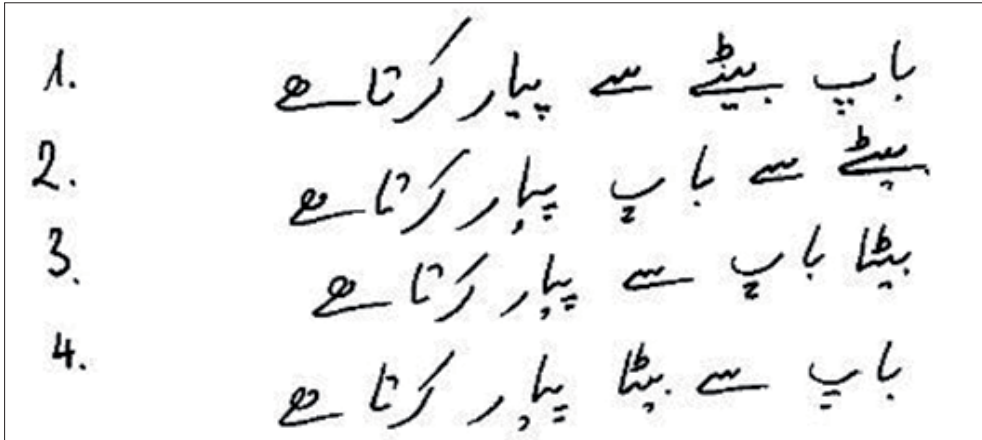 1. باپ بیٹے سے پیار کرتا ہے
2. بیٹے سے باپ پیار کرتا ہے
3. بیٹا باپ سے پیار کرتا ہے
4. باپ سے بیٹا پیار کرتا ہے